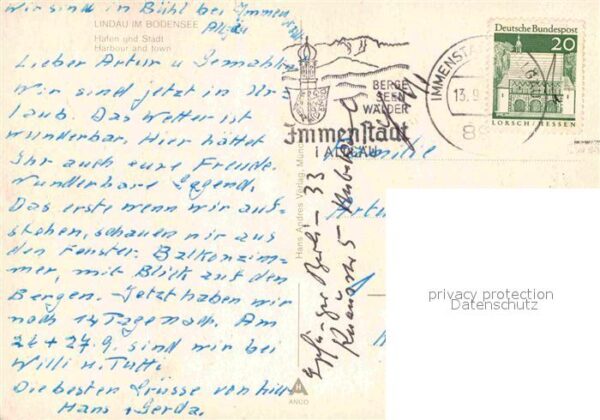 Wir sind in Bühl bei Immen
Allgäu
LINDAU IM BODENSEE
Hafen und Stadt
Harbour and town
Lieber Artur u Gemahlin.
Wir sind jetzt in Ur-
laub. Das Wetter ist
wunderbar. Hier hättet
Ihr auch eure Freude.
Wunderbare Gegend.
Das erste wenn wir auf-
stehen, schauen wir aus
den Fenster. Balkonzim-
mer, mit Blick auf den
Bergen. Jetzt haben wir
noch 14 Tage nach. Am
26 + 27.9. sind wir bei
Willi u. Tutti.
Die besten Grüsse von
Hans u Gerda.
Hans Andres Verlag,
ANCO
BERGE
SEEN
WÄLDER
Immenstadt
i. ALLGÄU
IMMENSTADT
13.9.
89
Deutsche Bundespost
20
LORSCH/HESSEN
Familie
Artur
Berlin - 33
5
privacy protection
Datenschutz